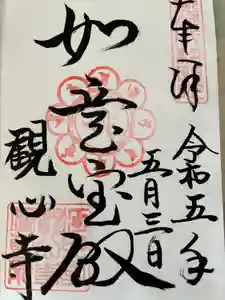 奉拝
令和五年
五月三日
如意宝殿
観心寺